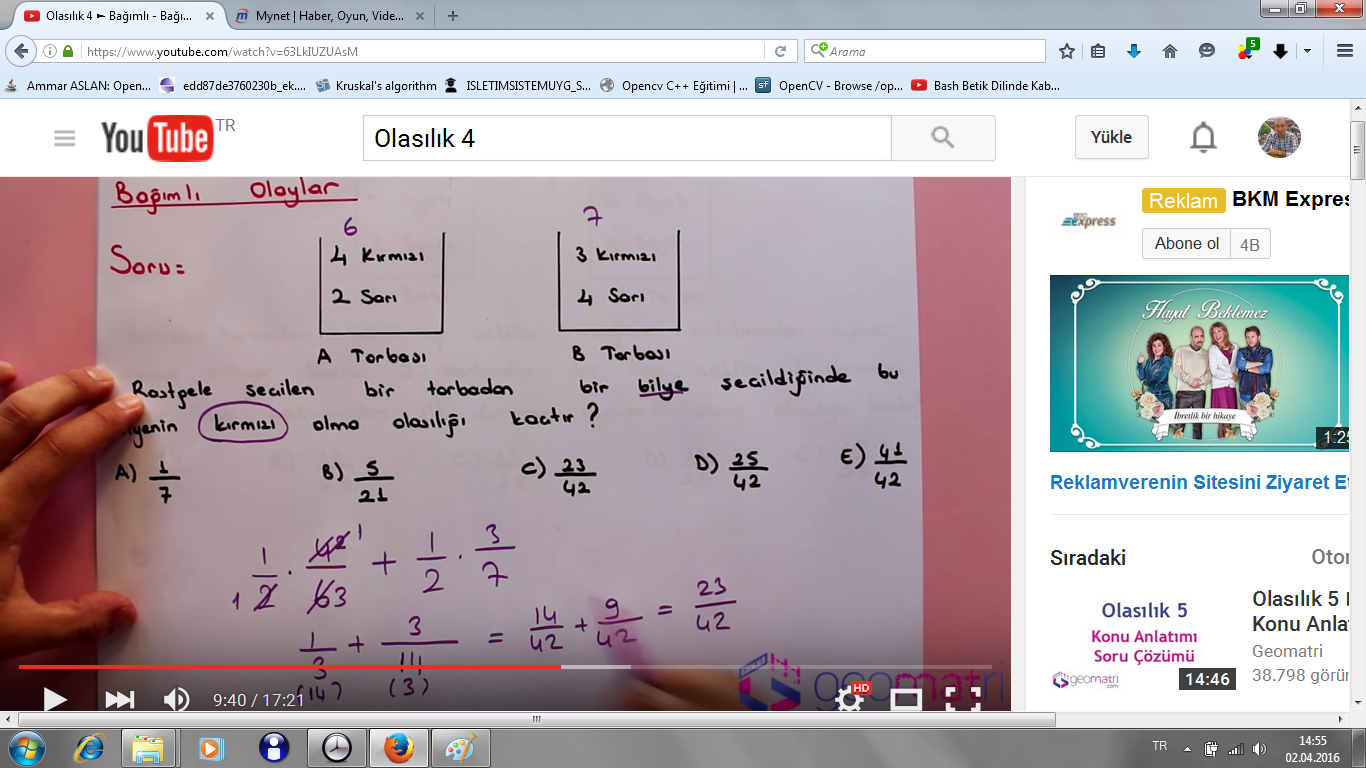 Olasılık 4 ► Bağımlı - Bağı...
Mynet | Haber, Oyun, Vide...
https://www.youtube.com/watch?v=63LkIUZUAsM
Arama
5
Ammar ASLAN: Open...
edd87de3760230b_ek....
Kruskal's algorithm
ISLETIMSISTEMUYG_S...
Opencv C++ Eğitimi | ...
OpenCV - Browse /op...
Bash Betik Dilinde Kab...
YouTube TR
Olasılık 4
Yükle
Bağımlı Olaylar
Soru=
6
4 Kırmızı
2 Sarı
A Torbası
7
3 Kırmızı
4 Sarı
B Torbası
Rastgele seçilen bir torbadan bir bilye seçildiğinde bu
kırmızı olma olasılığı kaçtır?
A) 1/7 B) 5/21 C) 23/42 D) 25/42 E) 41/42
1/2 . 42/63 + 1/2 . 3/7
1/3 + 3/14 = 14/42 + 9/42 = 23/42
(14) (3)
9:40 / 17:21
HD
geomatri
Reklam BKM Expres
express
Abone ol 4B
Hayat Beklemez
İbretlik bir hikaye
1:25
Reklamverenin Sitesini Ziyaret Et
Sıradaki
Oton
Olasılık 5
Konu Anlatımı
Soru Çözümü
geomatri.com
14:46
Olasılık 5
Konu Anla
Geomatri
38.798 görün
TR
14:55
02.04.2016